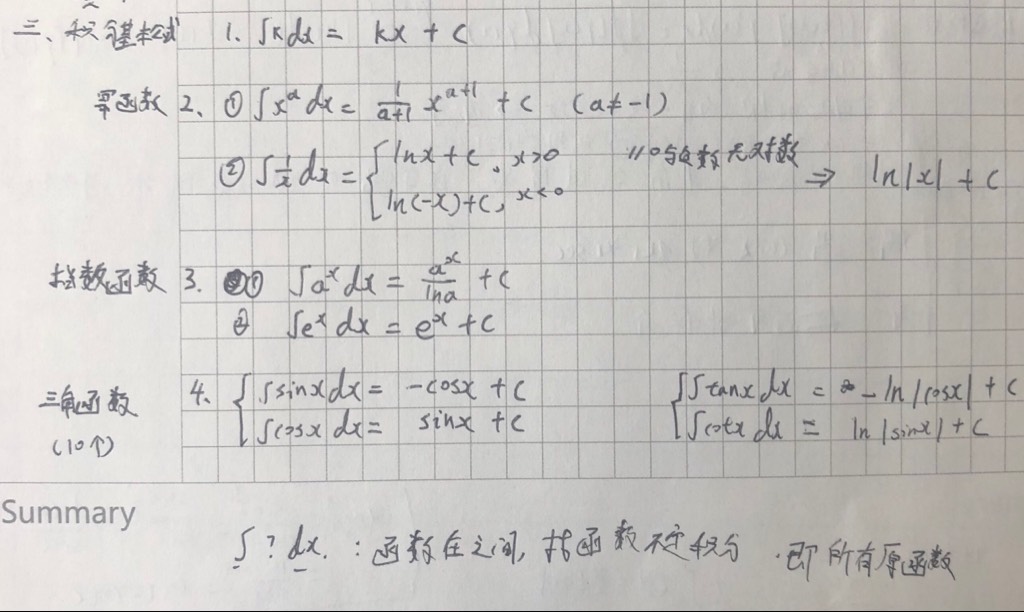 三、积分基本公式 1. ∫kdx = kx + C
幂函数 2、 ① ∫x^a dx = 1/(a+1) x^(a+1) + C (a≠-1)
② ∫1/x dx = { lnx + C, x>0
ln(-x)+C, x<0 //0与负数无对数 ⇒ ln|x| + C
指数函数 3. ① ∫a^x dx = a^x/lna + C
② ∫e^x dx = e^x + C
三角函数 4、 { ∫sinxdx = -cosx + C { ∫tanxdx = -ln|cosx| + C
(10个) ∫cosxdx = sinx + C ∫cotxdx = ln|sinx| + C
Summary
∫ ? dx. : 函数在之间, 指函数不定积分. 即所有原函数